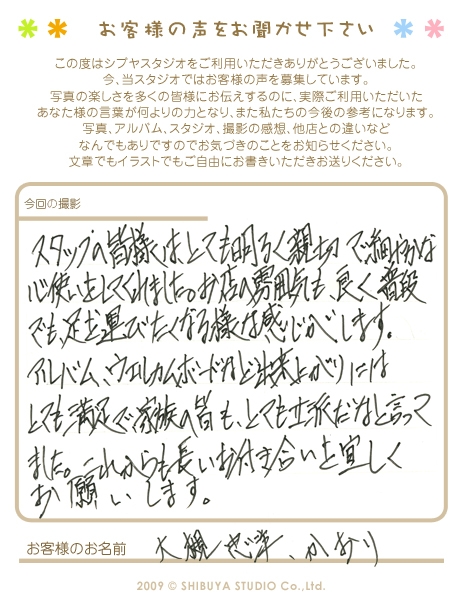 お客様の声をお聞かせ下さい
この度はシブヤスタジオをご利用いただきありがとうございました。
今、当スタジオではお客様の声を募集しています。
写真の楽しさを多くの皆様にお伝えするのに、実際ご利用いただいた
あなた様の言葉が何よりの力となり、また私たちの今後の参考になります。
写真、アルバム、スタジオ、撮影の感想、他店との違いなど
なんでもありですのでお気づきのことをお知らせください。
文章でもイラストでもご自由にお書きいただきお送りください。
今回の撮影
スタッフの皆様はとても明るく親切で細やかな
心使いをしてくれました。お店の雰囲気も良く普段
でも足を運びたくなる様な感じがします。
アルバム、ウェルカムボードなど出来上がりには
とても満足で家族の皆も、とても立派だなと言って
ました。これからも長いお付き合いを宜しく
お願いします。
お客様のお名前 大 かおり
2009 © SHIBUYA STUDIO Co.,Ltd.